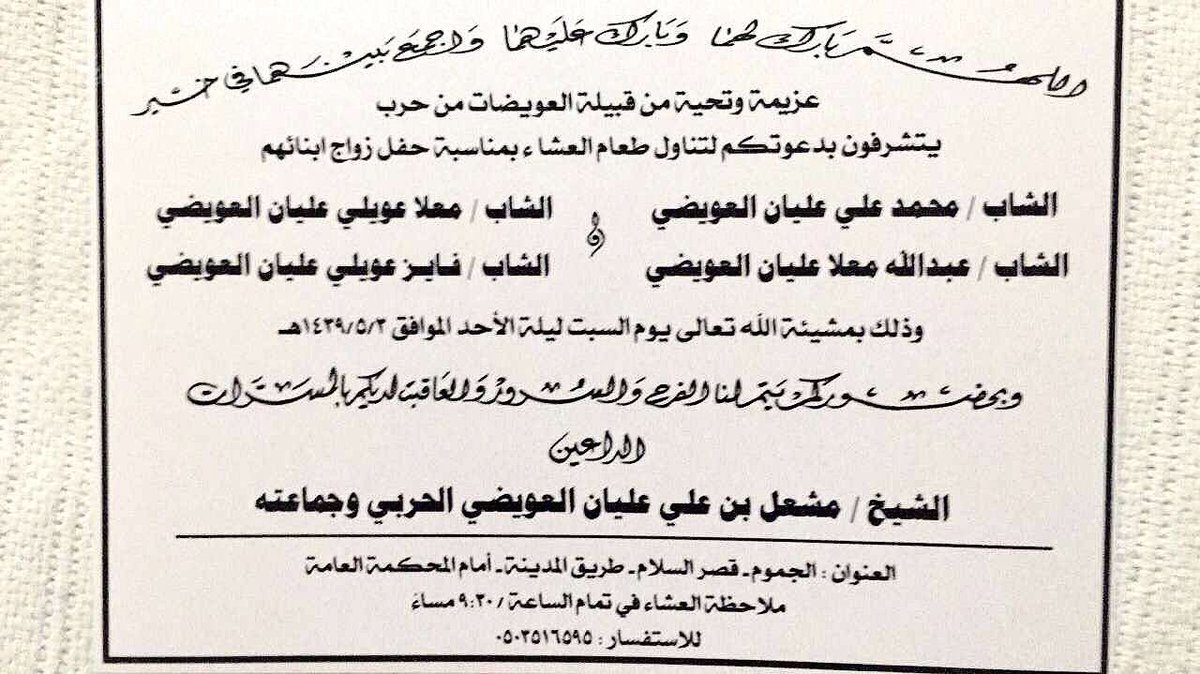 اللهم بارك لهما وبارك عليهما واجمع بينهما في خير
عزيمة وتحية من قبيلة العويضات من حرب
يتشرفون بدعوتكم لتناول طعام العشاء بمناسبة حفل زواج ابنائهم
الشاب / محمد علي عليان العويضي و الشاب / معلا عويلي عليان العويضي
الشاب / عبدالله معلا عليان العويضي الشاب / فايز عويلي عليان العويضي
وذلك بمشيئة الله تعالى يوم السبت ليلة الأحد الموافق ١٤٣٩/٥/٣هـ
وبحضوركم يتم لنا الفرح والسرور والعاقبة لديكم بالمسرات
الداعين
الشيخ / مشعل بن علي عليان العويضي الحربي وجماعته
العنوان : الجموم ـ قصر السلام ـ طريق المدينة ـ أمام المحكمة العامة
ملاحظة العشاء في تمام الساعة / ٩:٣٠ مساءً
للاستفسار : ٠٥٠٣٥١٦٥٩٥